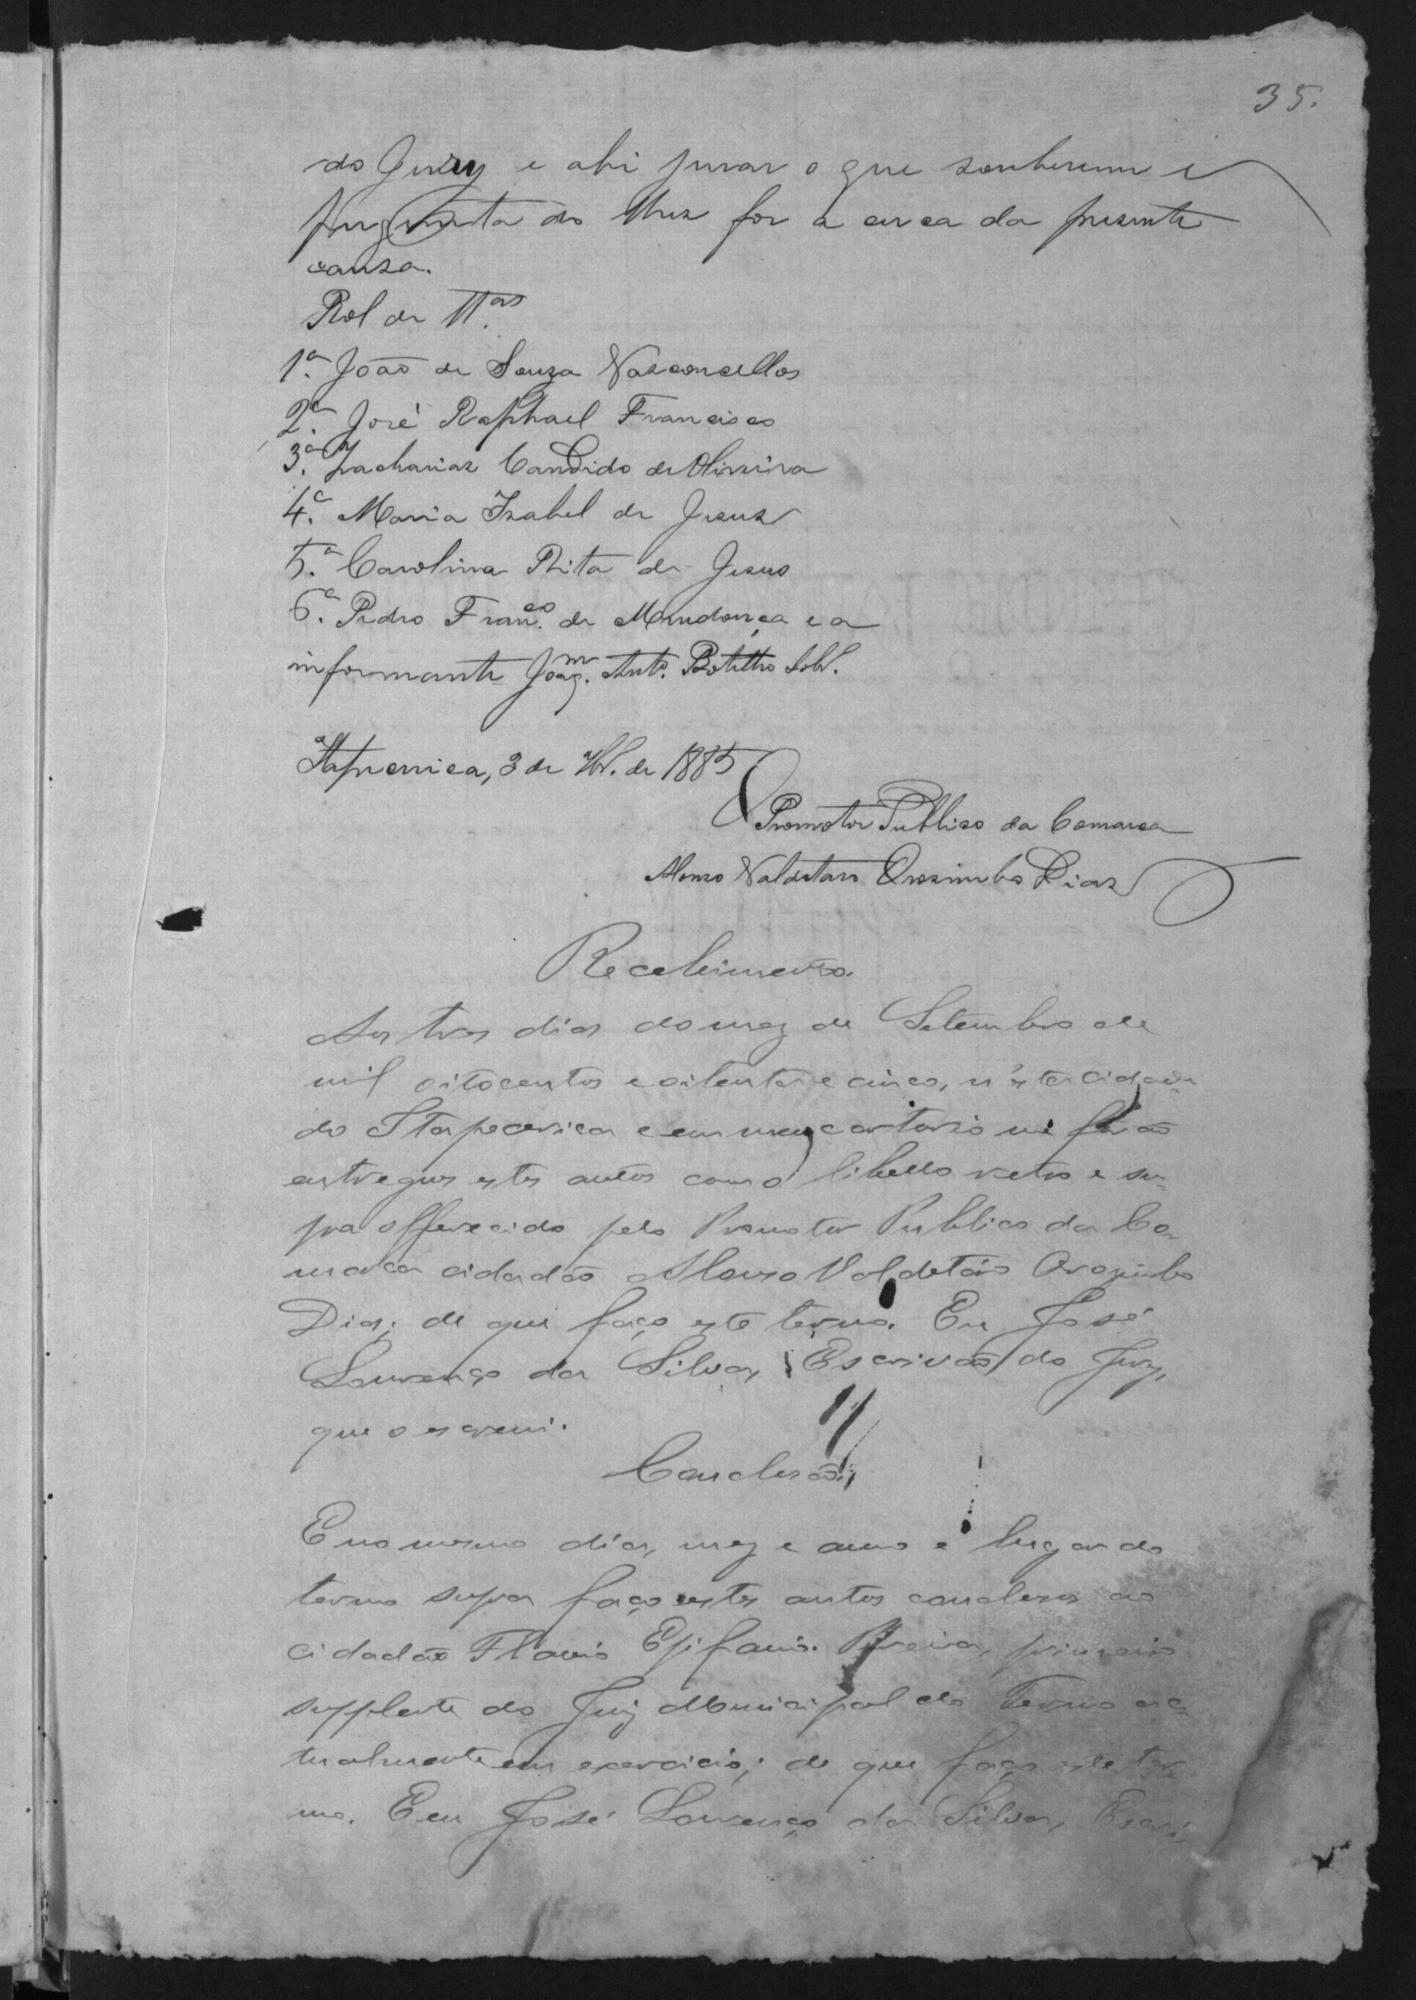 35.
do Jury e ahi jurar o que souberem e
perguntado lhes for a cerca da presente
causa.
Rol de TT.as
1.a João de Souza Vasconcellos
2.a José Raphael Francisco
3.a Zacharias Candido de Oliveira
4.a Maria Izabel de Jesus
5.a Carolina Rita de Jesus
6.a Pedro Fran.co de Mendonça e a
informante Joaq.m Ant.o Botelho Sobr.
Itapecerica, 3 de 7br. de 1885
O Promotor Publico da Comarca
Alonso Valdetaro Orozimbo Dias
Recebimento.
Aos tres dias do mez de Setembro de
mil oitocentos e oitenta e cinco, n'esta cidade
do Itapecerica e em meu cartorio me forão
entregues estes autos com o libello retro e su-
pra offerecido pelo Promotor Publico da Co-
marca cidadão Alonso Valdetaro Orozimbo
Dias; de que faço este termo. Eu José
Lourenço da Silva, Escrivão do Jury,
que o escrevi.
Conclusão.
E no mesmo dia, mez e anno e lugar do
termo supra faço estes autos conclusos ao
cidadão Flavio Epifanio Pereira, primeiro
supplente do Juiz Municipal do Termo ac-
tualmente em exercicio; de que faço este ter-
mo. Eu José Lourenço da Silva, Escri-